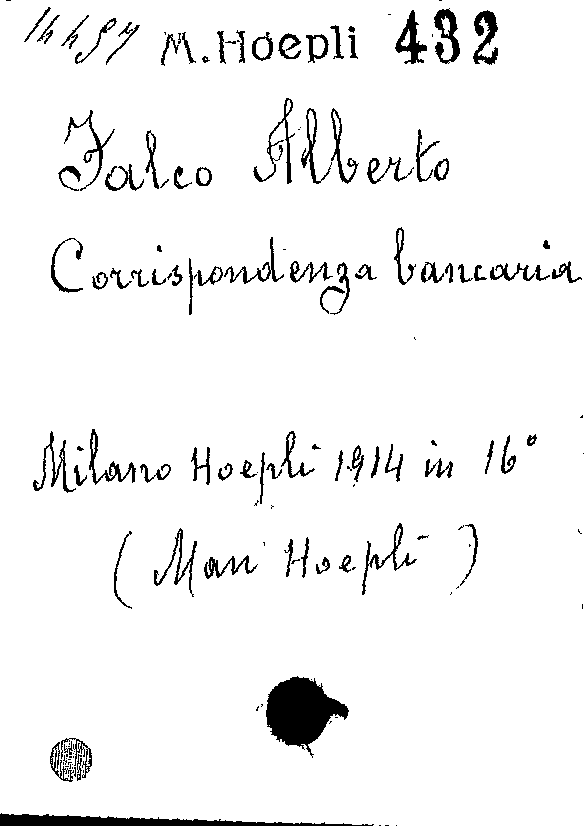 M. Hoepli 432
Falco Alberto
Corrispondenza bancaria
Milano Hoepli 1914 in 16°
(Man Hoepli)